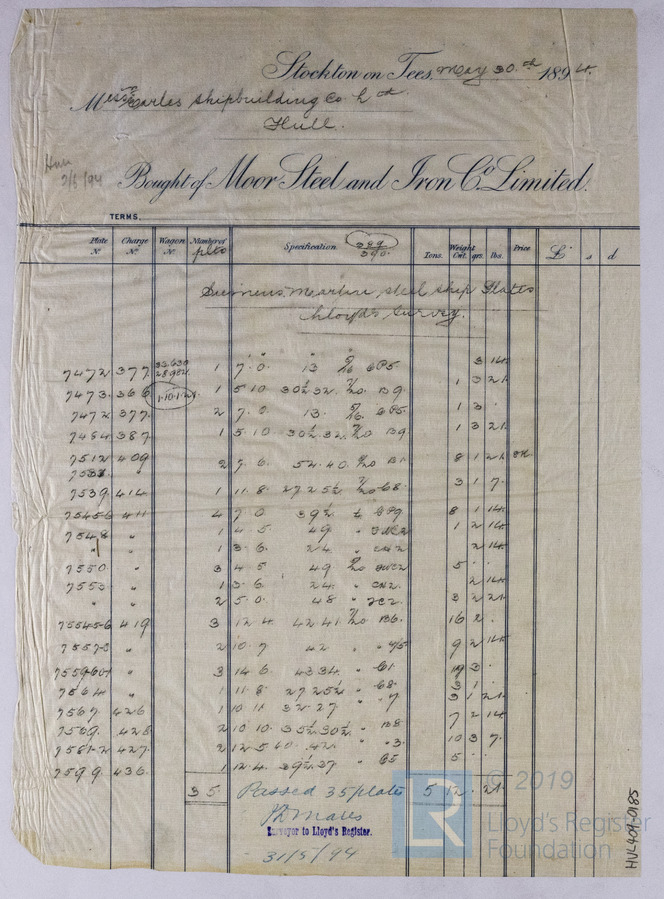 Stockton on Tees, May 30th 1894.
Messrs Earles Shipbuilding Co Ltd
Hull.
2/6/94
Bought of Moor Steel and Iron Co. Limited.
TERMS.
Plate No. Charge No. Wagon No. Number of plts Specification 389 390 Tons. Weight Cwt. qrs. lbs. Price £ s d
Siemens Martin Steel Ship Plates
Lloyds Survey.
7472 377 1 7.0 13 3 14
7473 366 1.10.1.21 1 5.10 30½ 32 7/20 B9 1 3 21
7472 377 2 7.0 13 1 3
7484 387 1 5.10 30½ 32 7/20 B9 1 3 21
7512 409 2 7.6 54.40 B1 8 1 21
7539 414 1 11.8 27 25½ 7/20 68 3 1 7
7545-6 411 4 7.0 39½ 8 1 14
7548 " 1 4.5 49 " 1 2 14
" " 1 3.6 24 " 2 14
7550 " 3 4.5 49 5
7553 " 1 3.6 24 " 2 14
" " 2 5.0 48 " 3 2 21
7554-5-6 419 3 12.4 42 41 7/20 B6 16 2
7557-8 " 2 10.7 42 " 9 2 14
7559-60-1 " 3 14.6 43 34 " 61 3
7564 " 1 11.8 27 25½ " 68 3 1 21
7567 426 1 10.11 32.27 "
7569 428 2 10.10 35½ 30½ " B8 7 2 14
7581-2 427 2 12.5 40.42 " 10 3 7
7599 436 1 12.4 39½ 37 " 65 5
35 Passed 35 plates 5 12 21
Surveyor to Lloyd's Register.
31/5/94
© 2019
LR
Lloyd's Register
Foundation
HUL409-0185